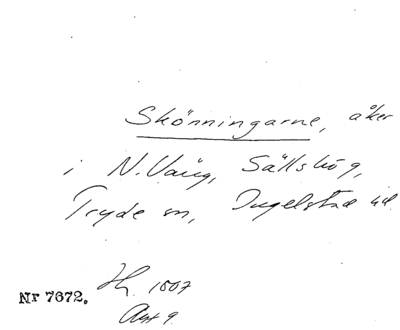 Skönningarne, åker
i N. Vång, Sällshög,
Tryde sn, Ingelstad hd
Hh. 1807
Akt 9
Nr 7672.